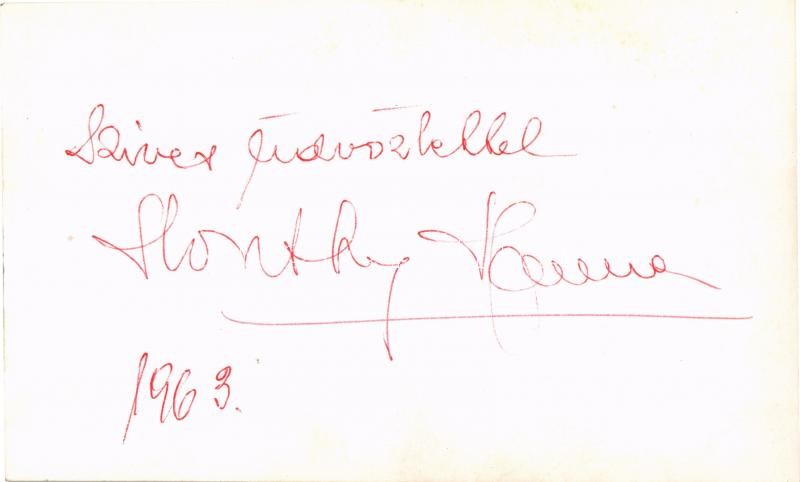 Szíves üdvözlettel
Honthy Hanna
1963.